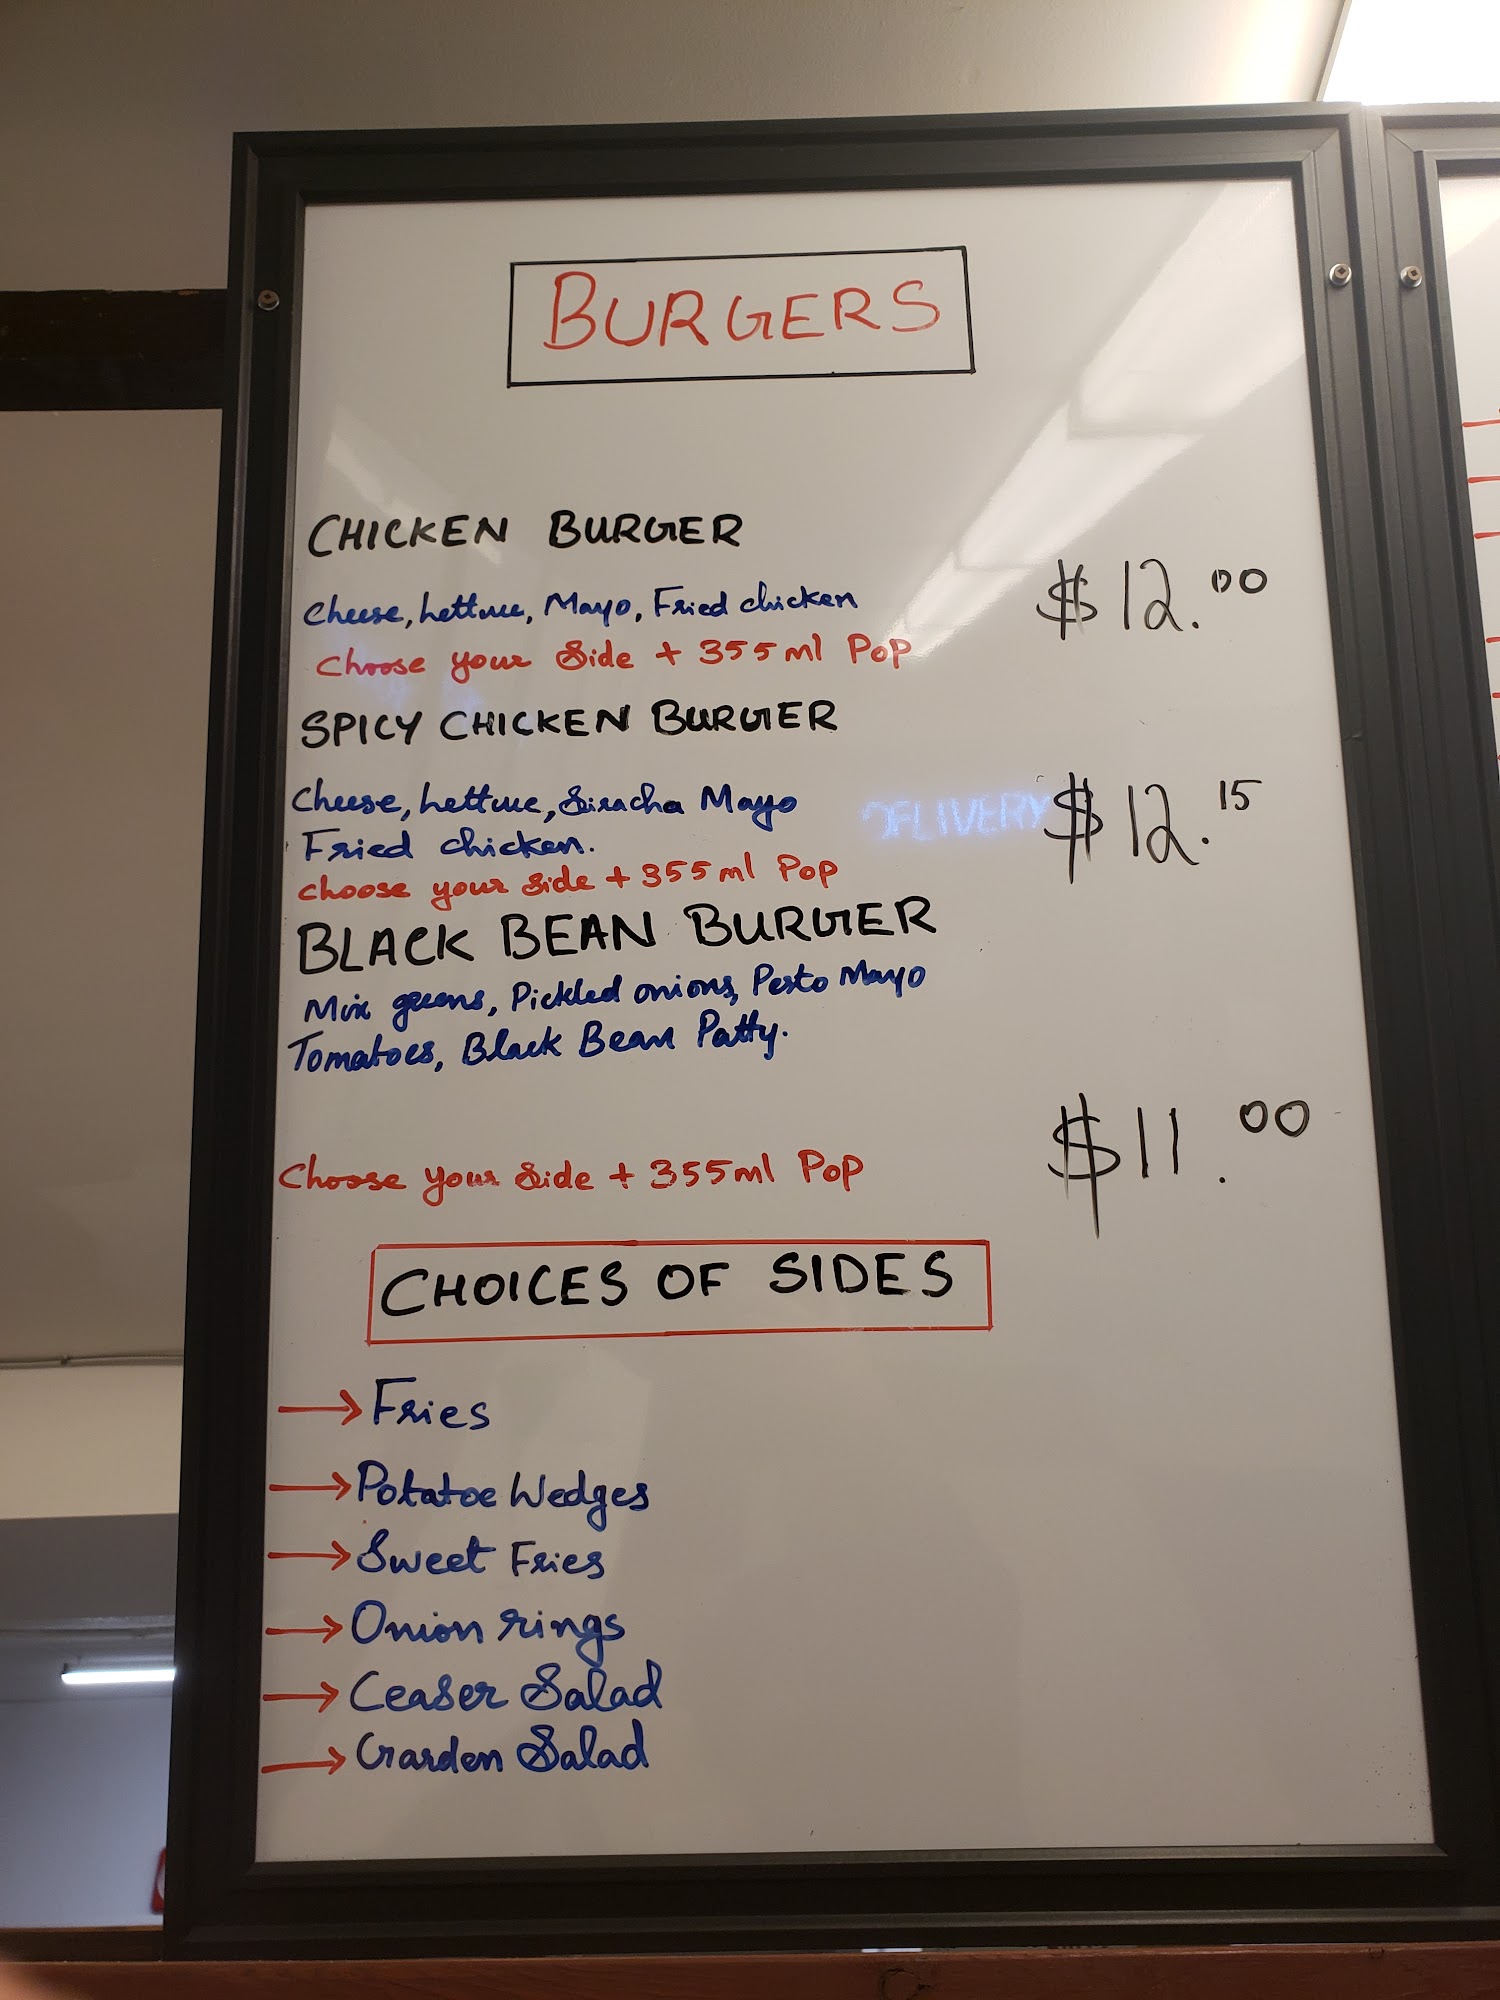 BURGERS
CHICKEN BURGER
Cheese, Lettuce, Mayo, Fried chicken
$12.00
Choose your Side + 355ml Pop
SPICY CHICKEN BURGER
Cheese, Lettuce, Siracha Mayo
DELIVERY
$12.15
Fried chicken.
choose your Side + 355ml Pop
BLACK BEAN BURGER
Mix greens, Pickled onions, Pesto Mayo
Tomatoes, Black Bean Patty.
$11.00
Choose your Side + 355ml Pop
CHOICES OF SIDES
→ Fries
→ Potatoe Wedges
→ Sweet Fries
→ Onion rings
→ Ceaser Salad
→ Garden Salad